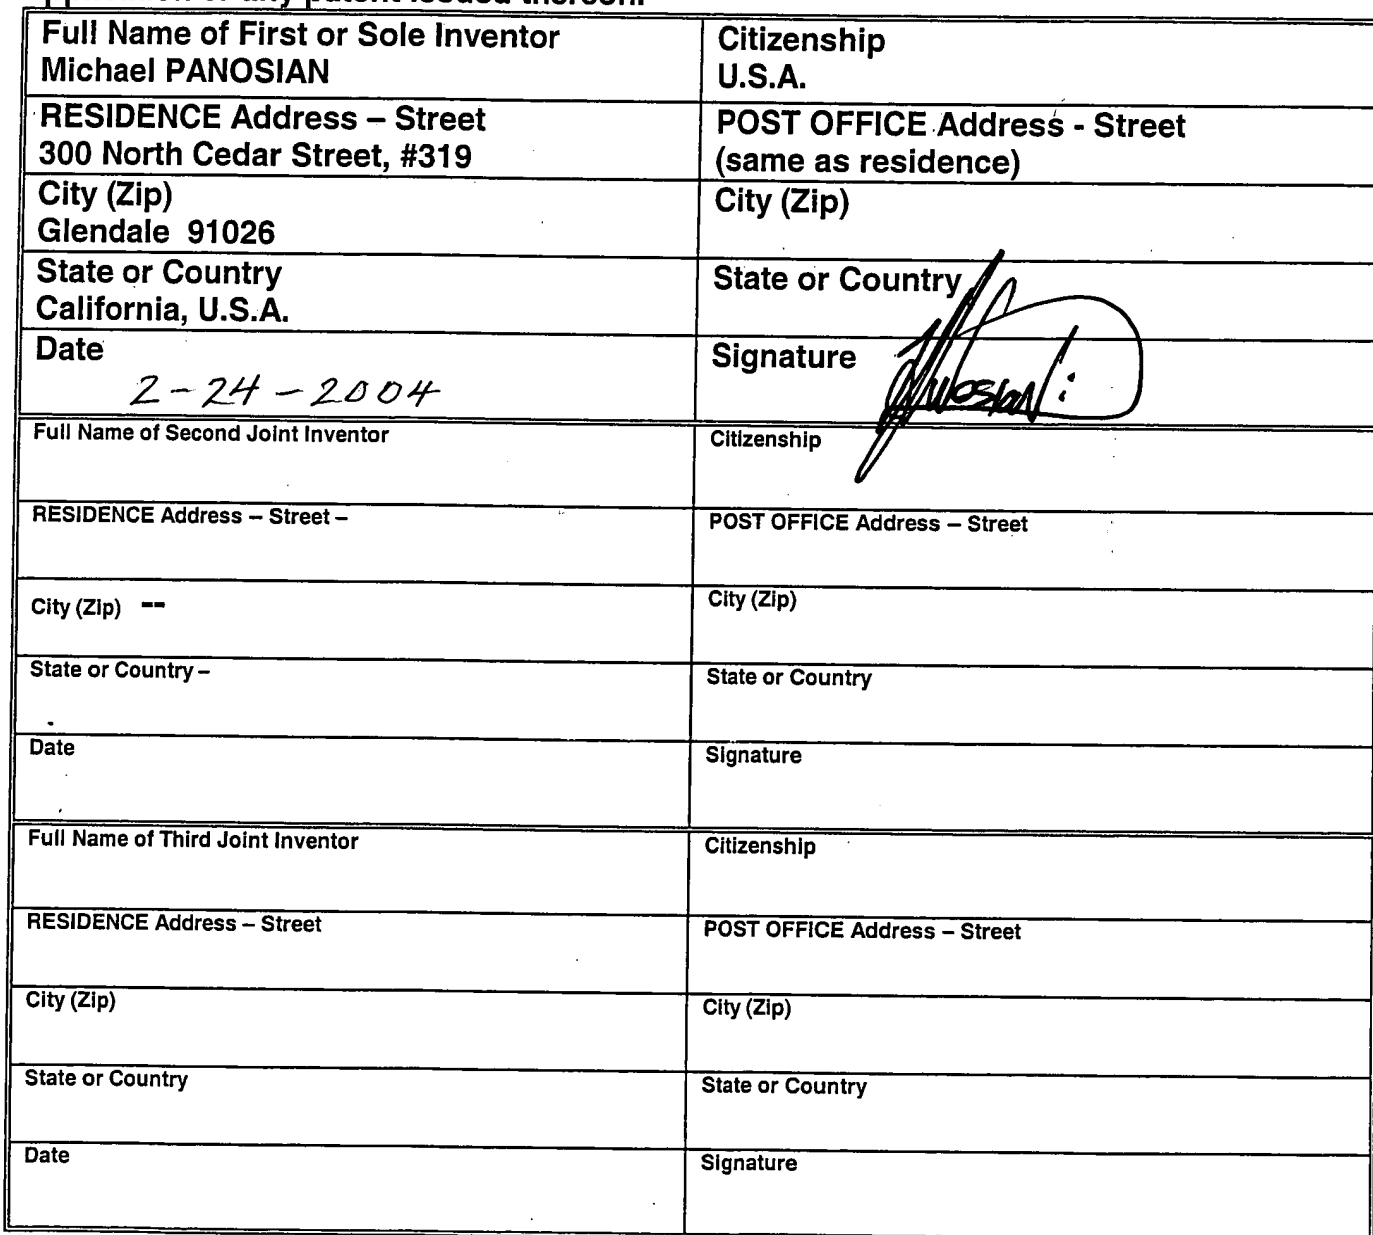 Full Name of First or Sole Inventor
Michael PANOSIAN
Citizenship
U.S.A.
RESIDENCE Address – Street
300 North Cedar Street, #319
POST OFFICE Address - Street
(same as residence)
City (Zip)
Glendale 91026
City (Zip)
State or Country
California, U.S.A.
State or Country
Date
2-24-2004
Signature
Full Name of Second Joint Inventor
Citizenship
RESIDENCE Address – Street –
POST OFFICE Address – Street
City (Zip) --
City (Zip)
State or Country –
State or Country
Date
Signature
Full Name of Third Joint Inventor
Citizenship
RESIDENCE Address – Street
POST OFFICE Address – Street
City (Zip)
City (Zip)
State or Country
State or Country
Date
Signature